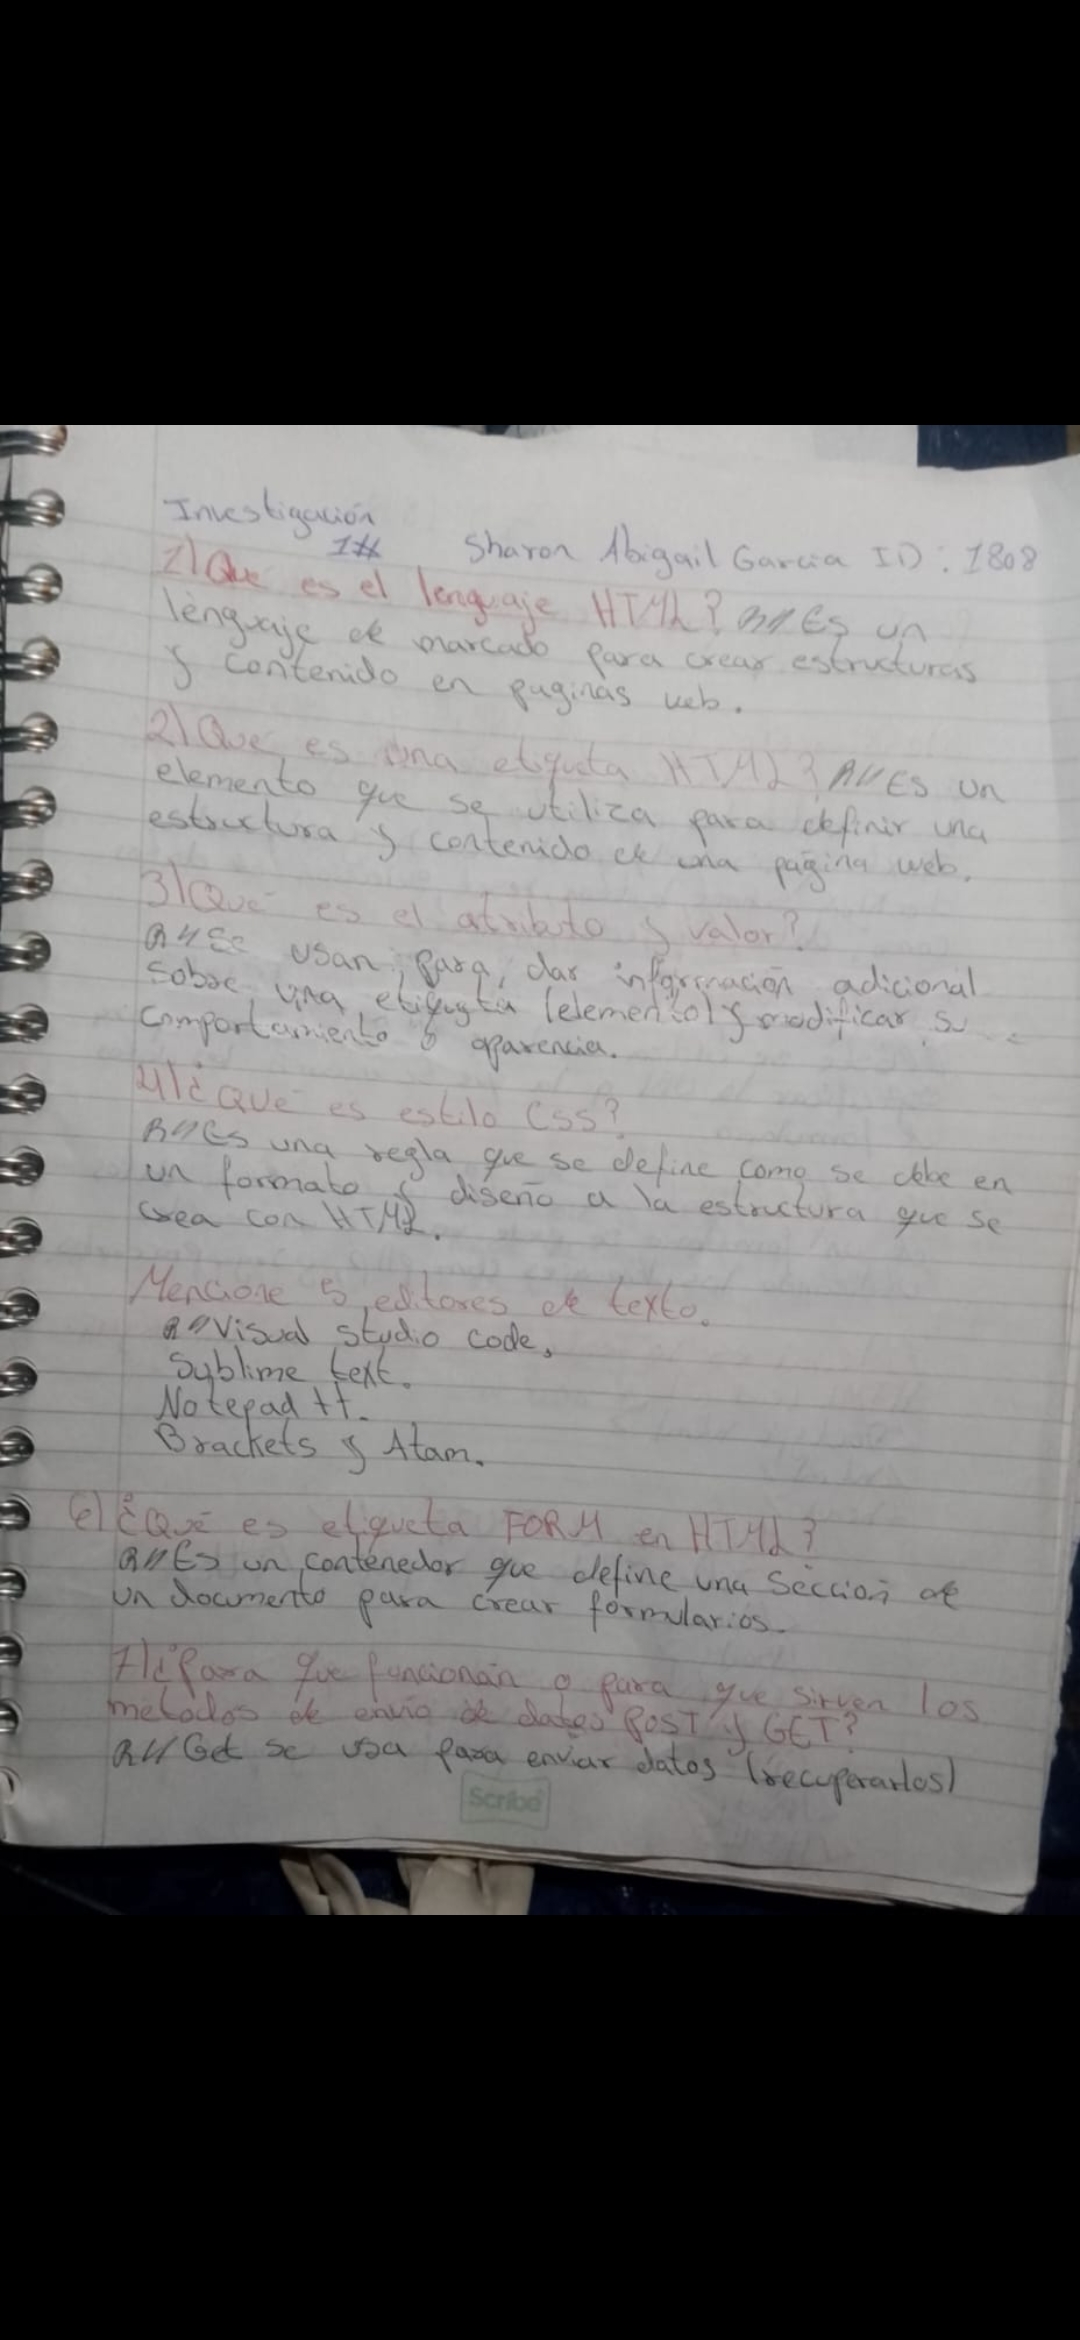 Investigación
1# Sharon Abigail Garcia ID: 1808
1) Que es el lenguaje HTML? R// Es un
lenguaje de marcado para crear estructuras
y contenido en paginas web.
2) Que es una etiqueta HTML? R// Es un
elemento que se utiliza para definir una
estructura y contenido de una página web.
3) Qué es el atributo y valor?
R// Se usan para dar información adicional
sobre una etiqueta (elemento) y modificar su
comportamiento o aparencia.
4) ¿Qué es estilo CSS?
R// Es una regla que se define como se debe en
un formato y diseño a la estructura que se
crea con HTML.
Mencione 5 editores de texto.
R// Visual studio code,
Sublime text.
Notepad ++.
Brackets y Atam.
6) ¿Qué es etiqueta FORM en HTML?
R// Es un contenedor que define una Sección de
un documento para crear formularios.
7) ¿Para que funcionan o para que sirven los
metodos de envio de datos POST y GET?
R// Get se usa para enviar datos (recuperarlos)
Scribe